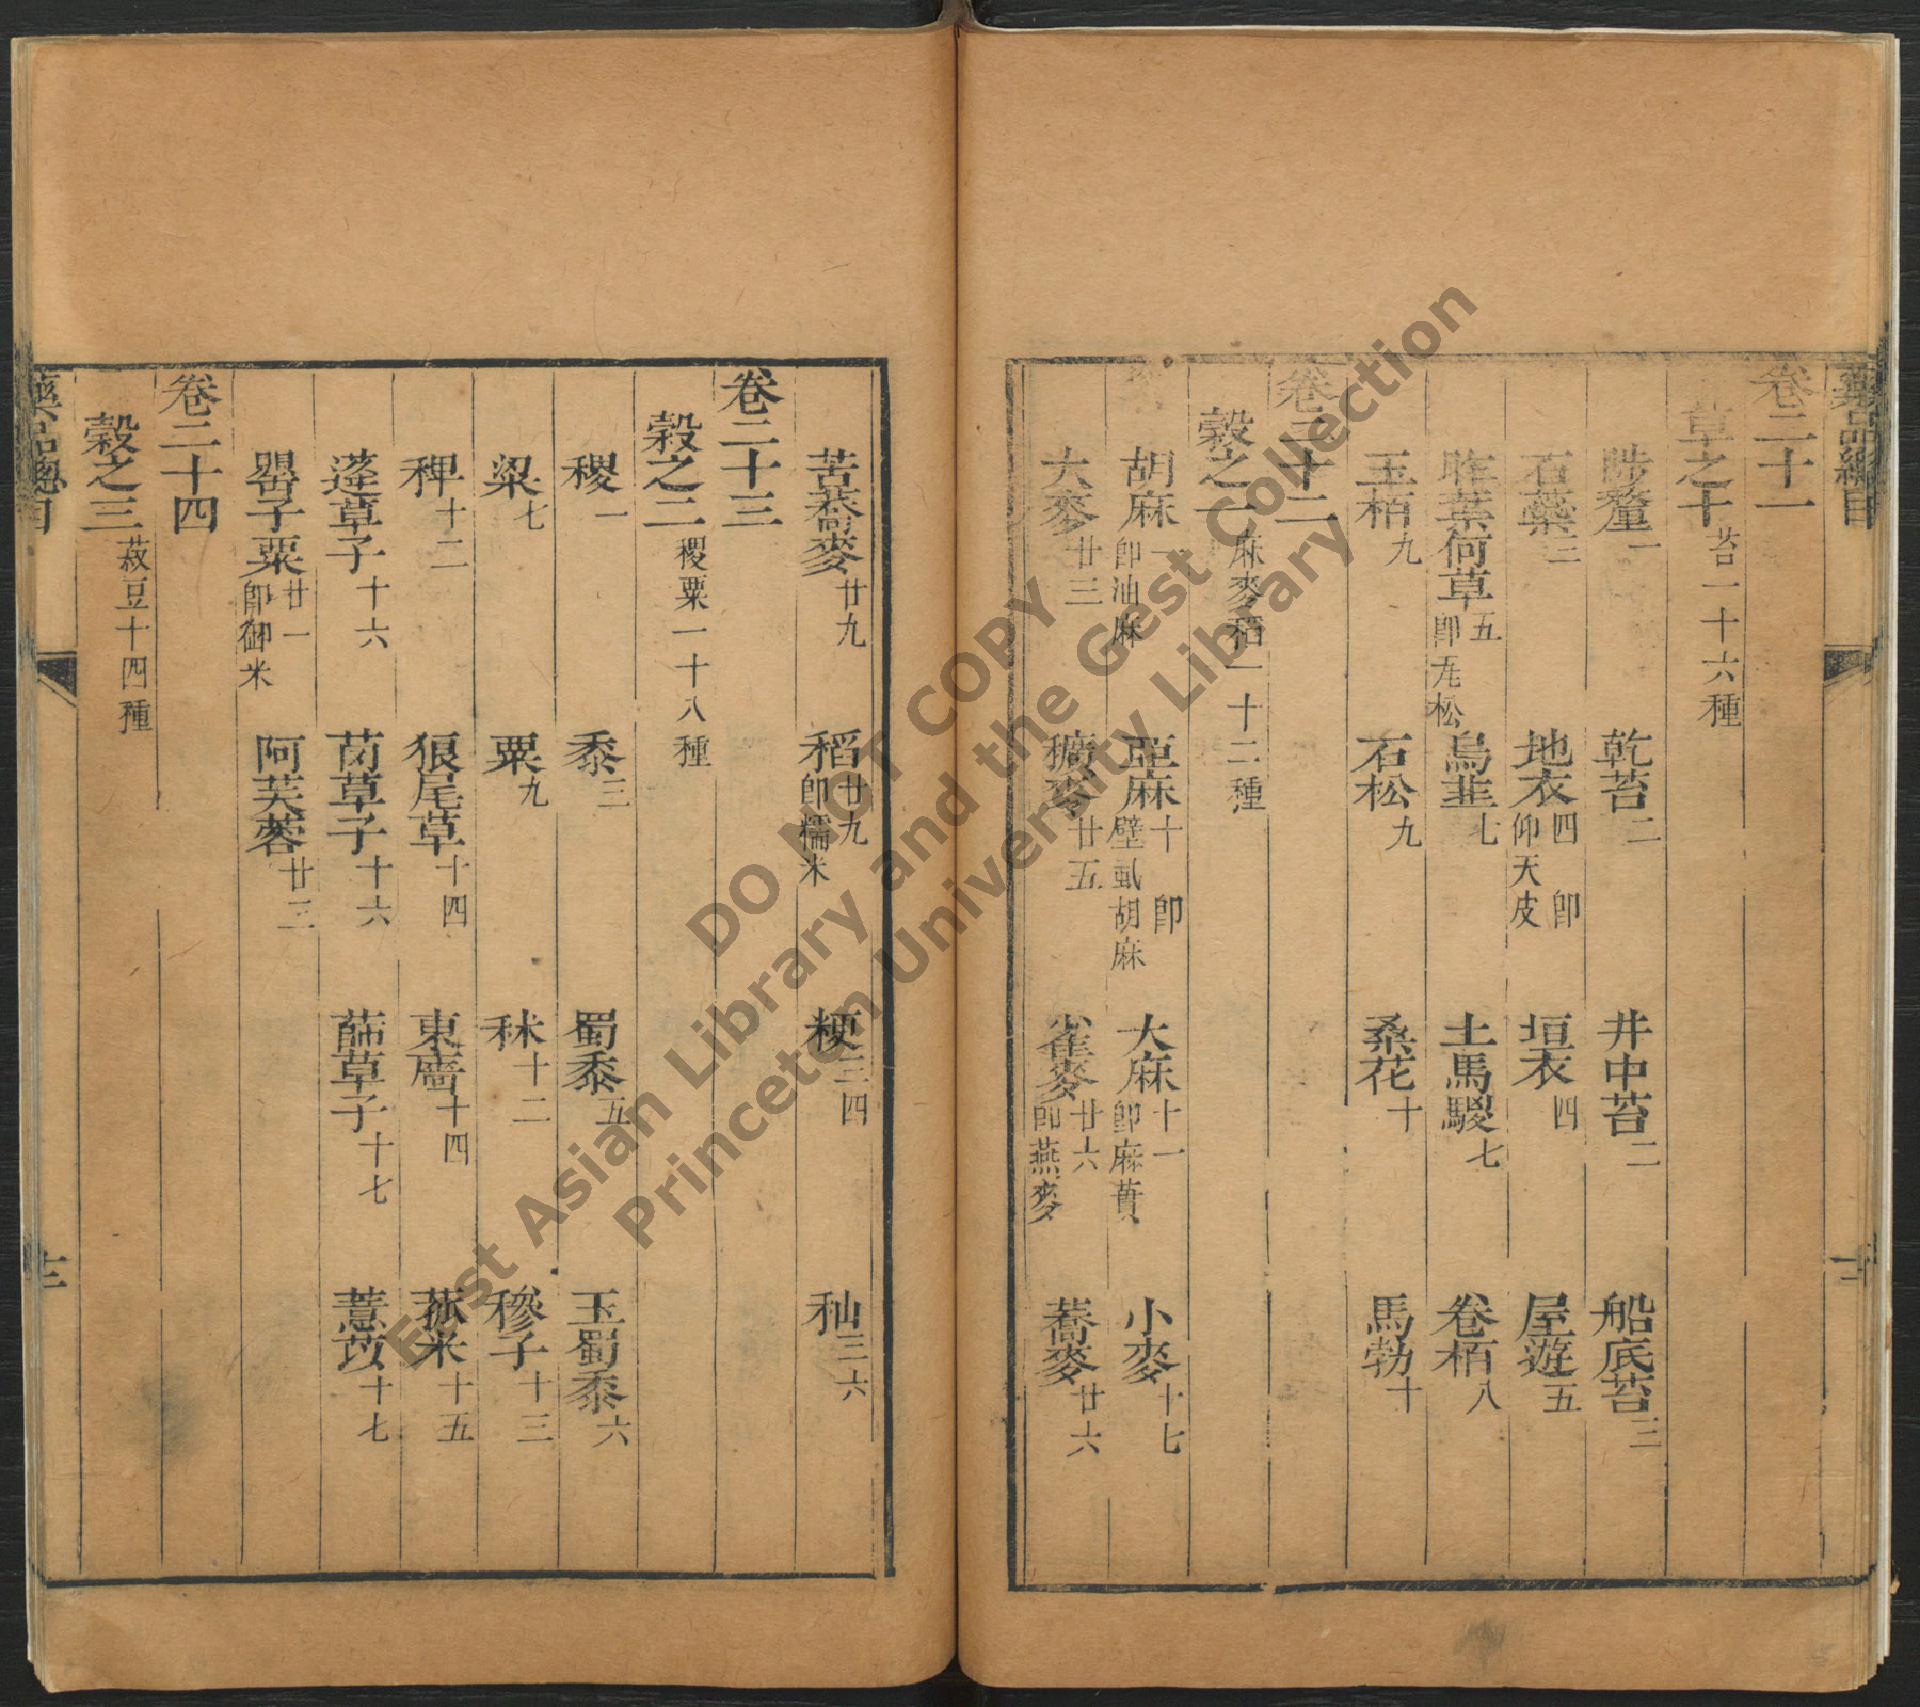 藥品總目
卷二十一
草之十 苔一十六種
陟釐一 乾苔二 井中苔二 船底苔三
石蘂三 地衣四 即仰天皮 垣衣四 屋遊五
昨葉何草五 即瓦松 烏韭七 土馬騣七 卷栢八
玉栢九 石松九 桑花十 馬勃十
卷二十二
穀之一 麻麥稻一十二種
胡麻一 即油麻 亞麻十 即壁虱胡麻 大麻十一 即麻蕡 小麥十七
大麥廿三 穬麥廿五 雀麥廿六 即燕麥 蕎麥廿六
苦蕎麥廿九 稻廿九 即糯米 粳三四 秈三六
卷二十三
穀之二 稷粟一十八種
稷一 黍三 蜀黍五 玉蜀黍六
粱七 粟九 秫十二 穇子十三
稗十二 狼尾草十四 東廧十四 菰米十五
蓬草子十六 䒽草子十六 蒒草子十七 薏苡十七
罌子粟廿一 即御米 阿芙蓉廿三
卷二十四
穀之三 菽豆十四種
藥品總目
DO NOT COPY
East Asian Library and the Gest Collection
Princeton University Library